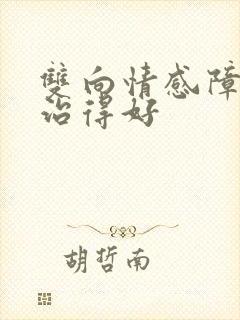 雙向情感障
治得好
胡哲南